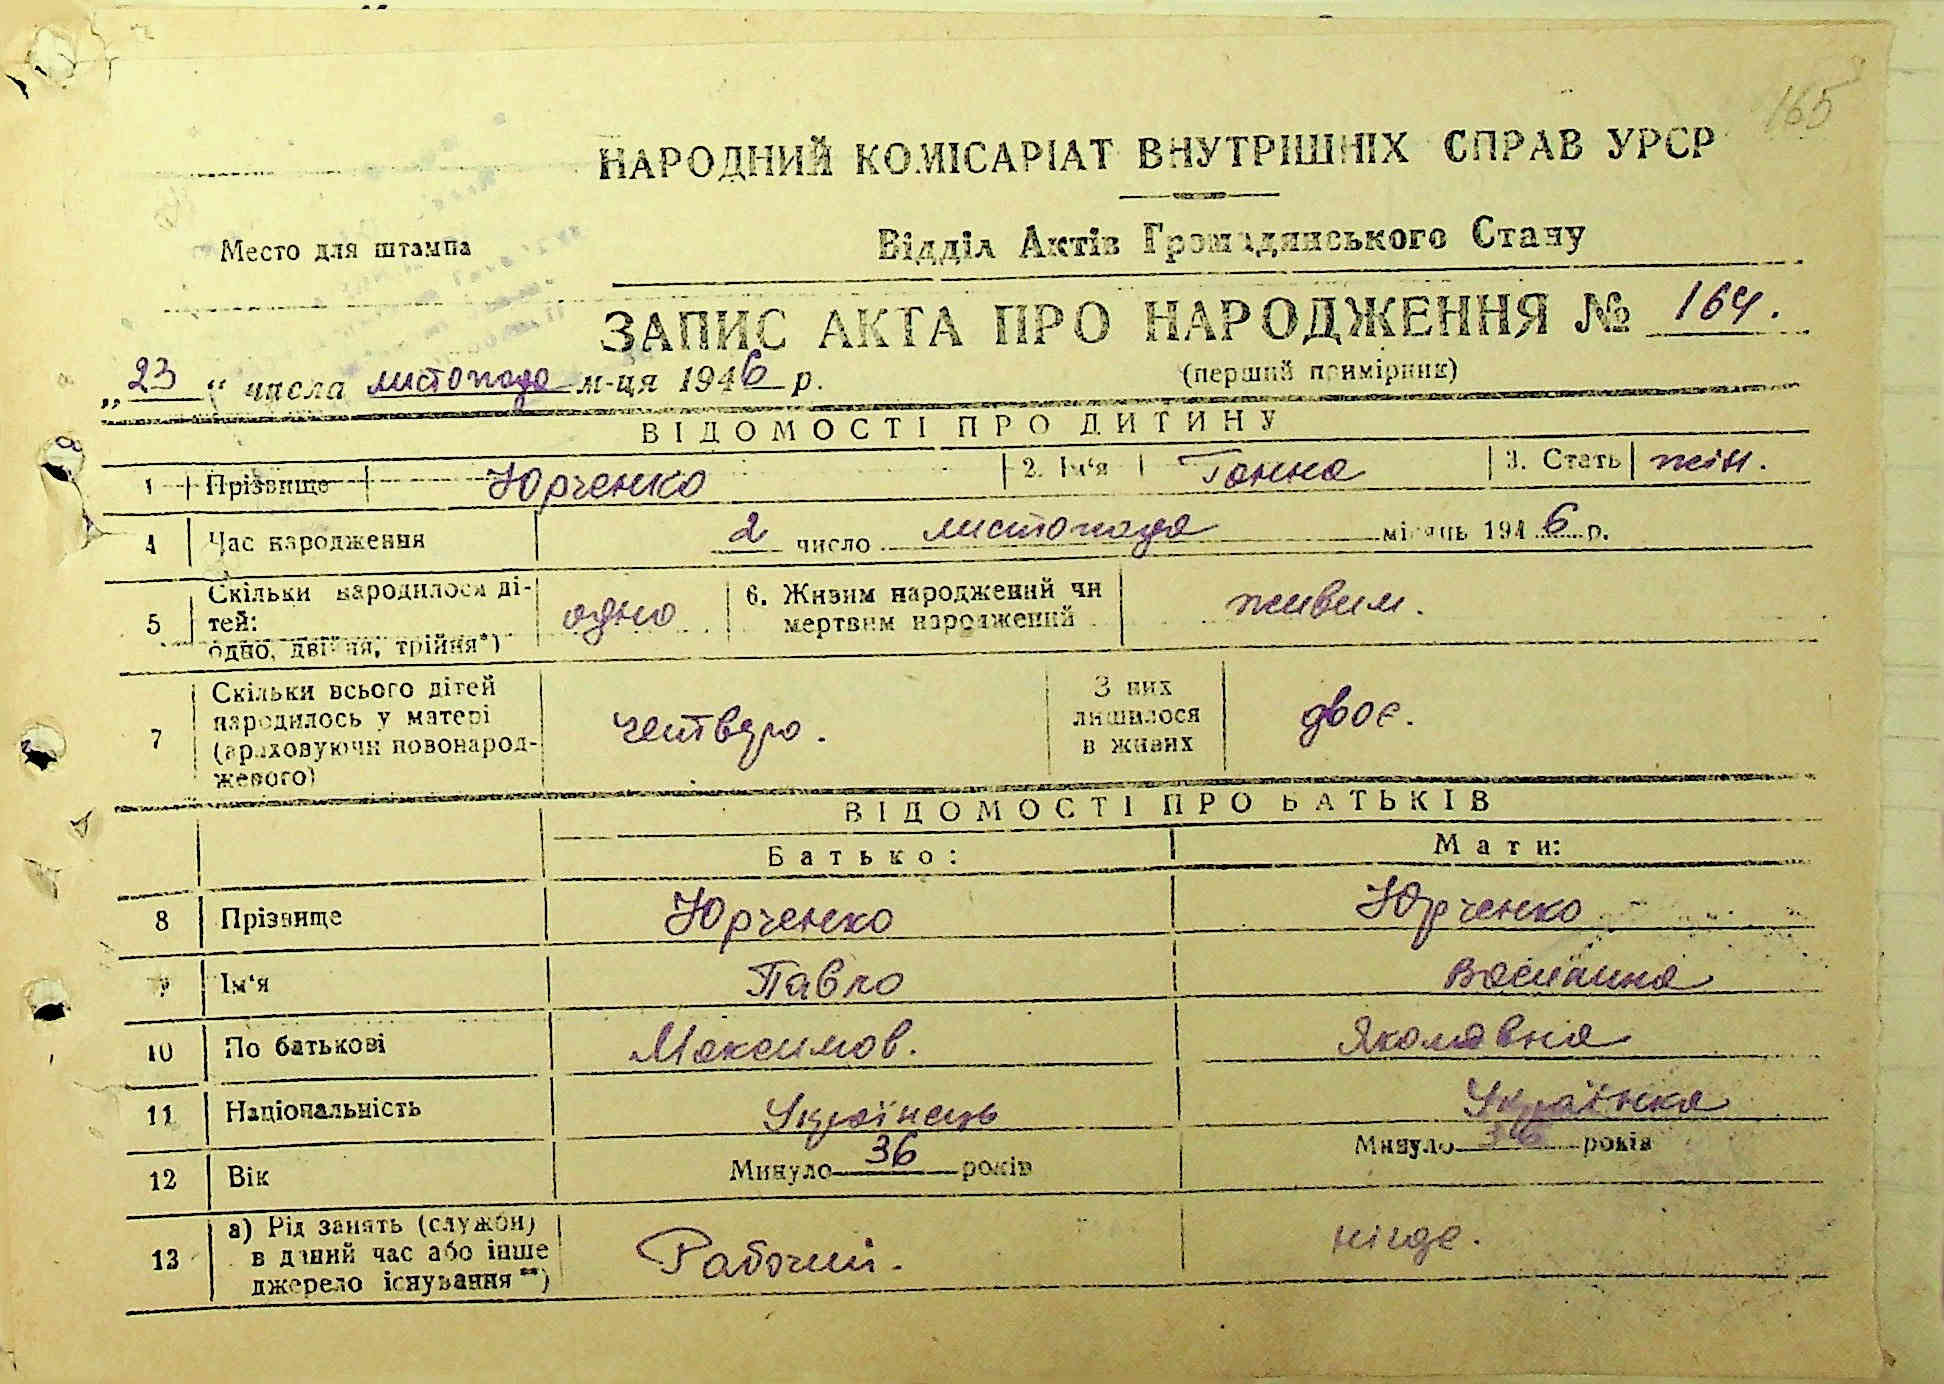 165
НАРОДНИЙ КОМІСАРІАТ ВНУТРІШНІХ СПРАВ УРСР
Место для штампа
Відділ Актів Громадянського Стану
ЗАПИС АКТА ПРО НАРОДЖЕННЯ № 164.
(перший примірник)
„23“ числа листопада м-ця 1946 р.
ВІДОМОСТІ ПРО ДИТИНУ
1 Прізвище Юрченко 2. Ім'я Ганна 3. Стать жін.
4 Час народження 2 число листопада місяць 1946 р.
5 Скільки народилося ді-
тей:
одно, двійня, трійня*) одно 6. Живим народжений чи
мертвим народжений живим.
7 Скільки всього дітей
народилось у матері
(враховуючи новонарод-
женого) четверо. З них
лишилося
в живих двоє.
ВІДОМОСТІ ПРО БАТЬКІВ
Батько: Мати:
8 Прізвище Юрченко Юрченко
9 Ім'я Павло
10 По батькові Максимов. Якомвна
11 Національність Українець Українка
12 Вік Минуло 36 років Минуло років
13 а) Рід занять (служби)
в даний час або інше
джерело існування**) Рабочий. нігде.